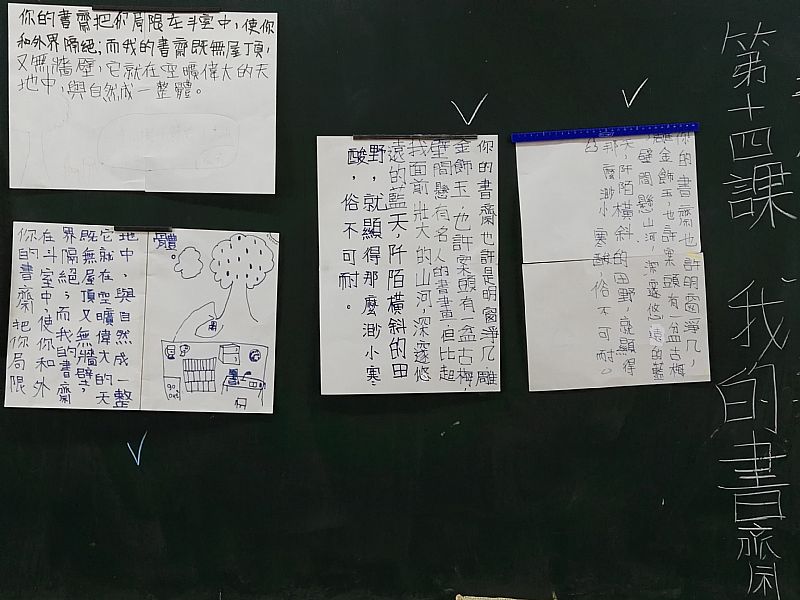 第十四課 我的書齋
你的書齋也許明窗淨几,
雕金飾玉,也許案頭有一盆古梅
,壁間懸山河,深邃悠遠的藍
天,阡陌橫斜的田野,就顯得
那麼渺小寒酸,俗不可耐。
你的書齋也許是明窗淨几,雕
金飾玉,也許案頭有一盆古梅,
壁間懸有名人的書畫,但比起
我面前壯大的山河,深邃悠
遠的藍天,阡陌橫斜的田
野,就顯得那麼渺小寒
酸,俗不可耐。
你的書齋把你局限在斗室中,使你
和外界隔絕;而我的書齋既無屋頂,
又無牆壁,它就在空曠偉大的天
地中,與自然成一整體。
你的書齋把你局限
在斗室中,使你和外
界隔絕;而我的書齋
既無屋頂又無牆壁,
它就在空曠偉大的天
地中,與自然成一整
體